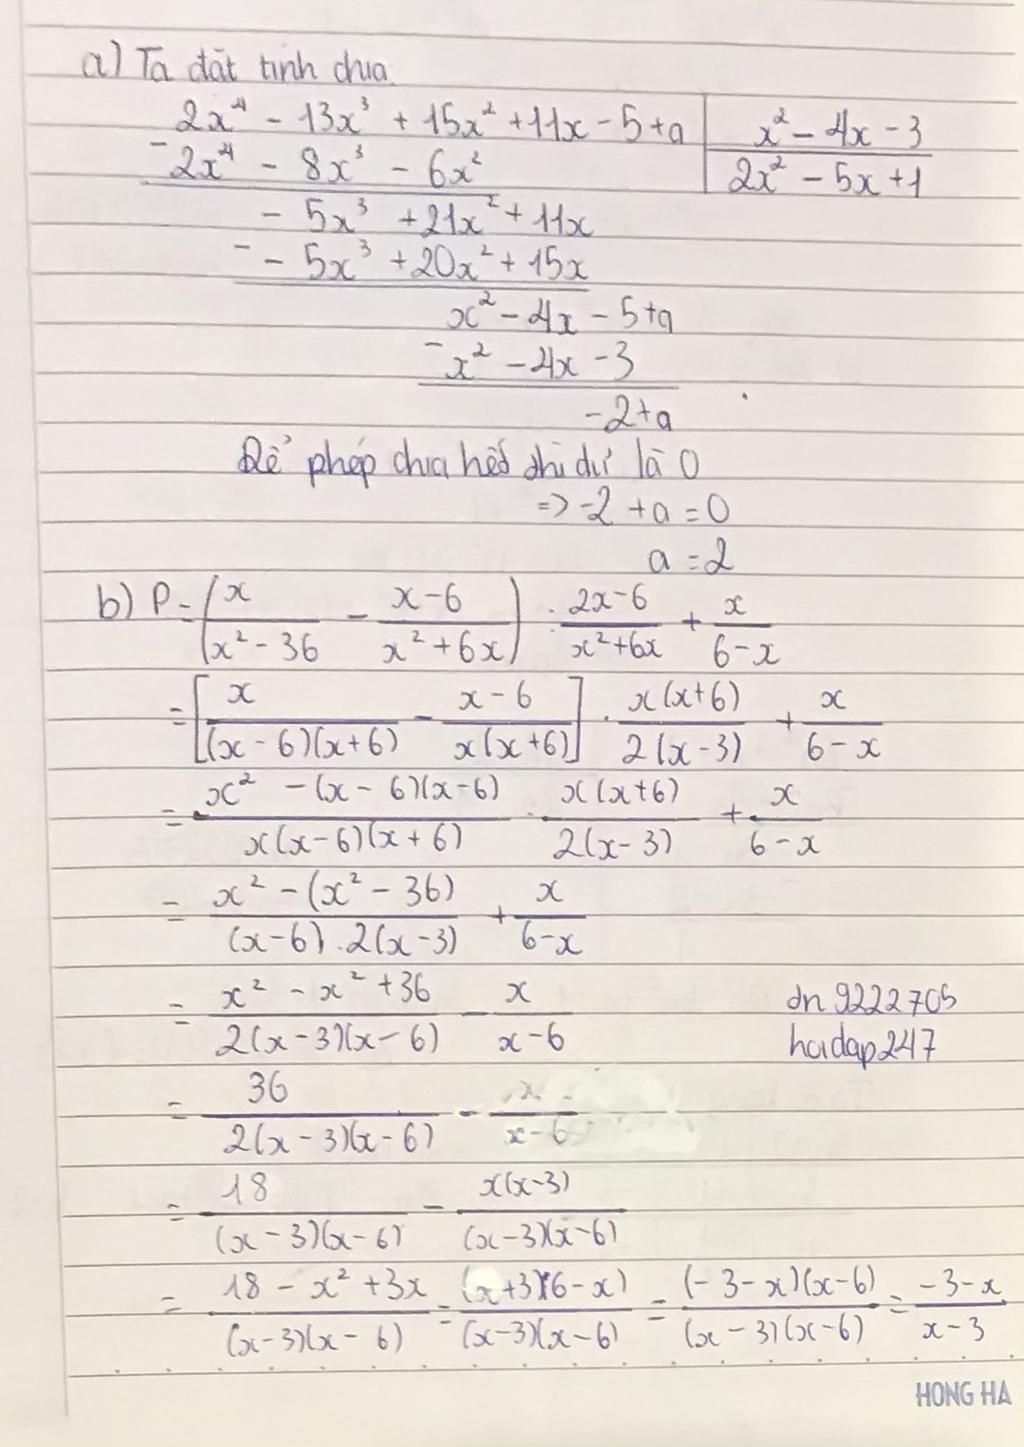 a) Ta đặt tính chia
2x⁴ - 13x³ + 15x² + 11x - 5 + a | x² - 4x - 3
- 2x⁴ - 8x³ - 6x² | 2x² - 5x + 1
- 5x³ + 21x² + 11x
- - 5x³ + 20x² + 15x
x² - 4x - 5 + a
- x² - 4x - 3
-2 + a
Để phép chia hết thì dư là 0
=> -2 + a = 0
a = 2
b) P = (x/(x² - 36) - (x - 6)/(x² + 6x)) : (2x - 6)/(x² + 6x) + x/(6 - x)
= [x/((x - 6)(x + 6)) - (x - 6)/(x(x + 6))] . x(x + 6)/(2(x - 3)) + x/(6 - x)
= (x² - (x - 6)(x - 6))/(x(x - 6)(x + 6)) . x(x + 6)/(2(x - 3)) + x/(6 - x)
= (x² - (x² - 36))/((x - 6) . 2(x - 3)) + x/(6 - x)
= (x² - x² + 36)/(2(x - 3)(x - 6)) - x/(x - 6)
dn9222705
hoidap247
= 36/(2(x - 3)(x - 6)) - x/(x - 6)
= 18/((x - 3)(x - 6)) - x(x - 3)/((x - 3)(x - 6))
= (18 - x² + 3x)/((x - 3)(x - 6)) = (x + 3)(6 - x)/((x - 3)(x - 6)) = (-3 - x)(x - 6)/((x - 3)(x - 6)) = (-3 - x)/(x - 3)
HONG HA